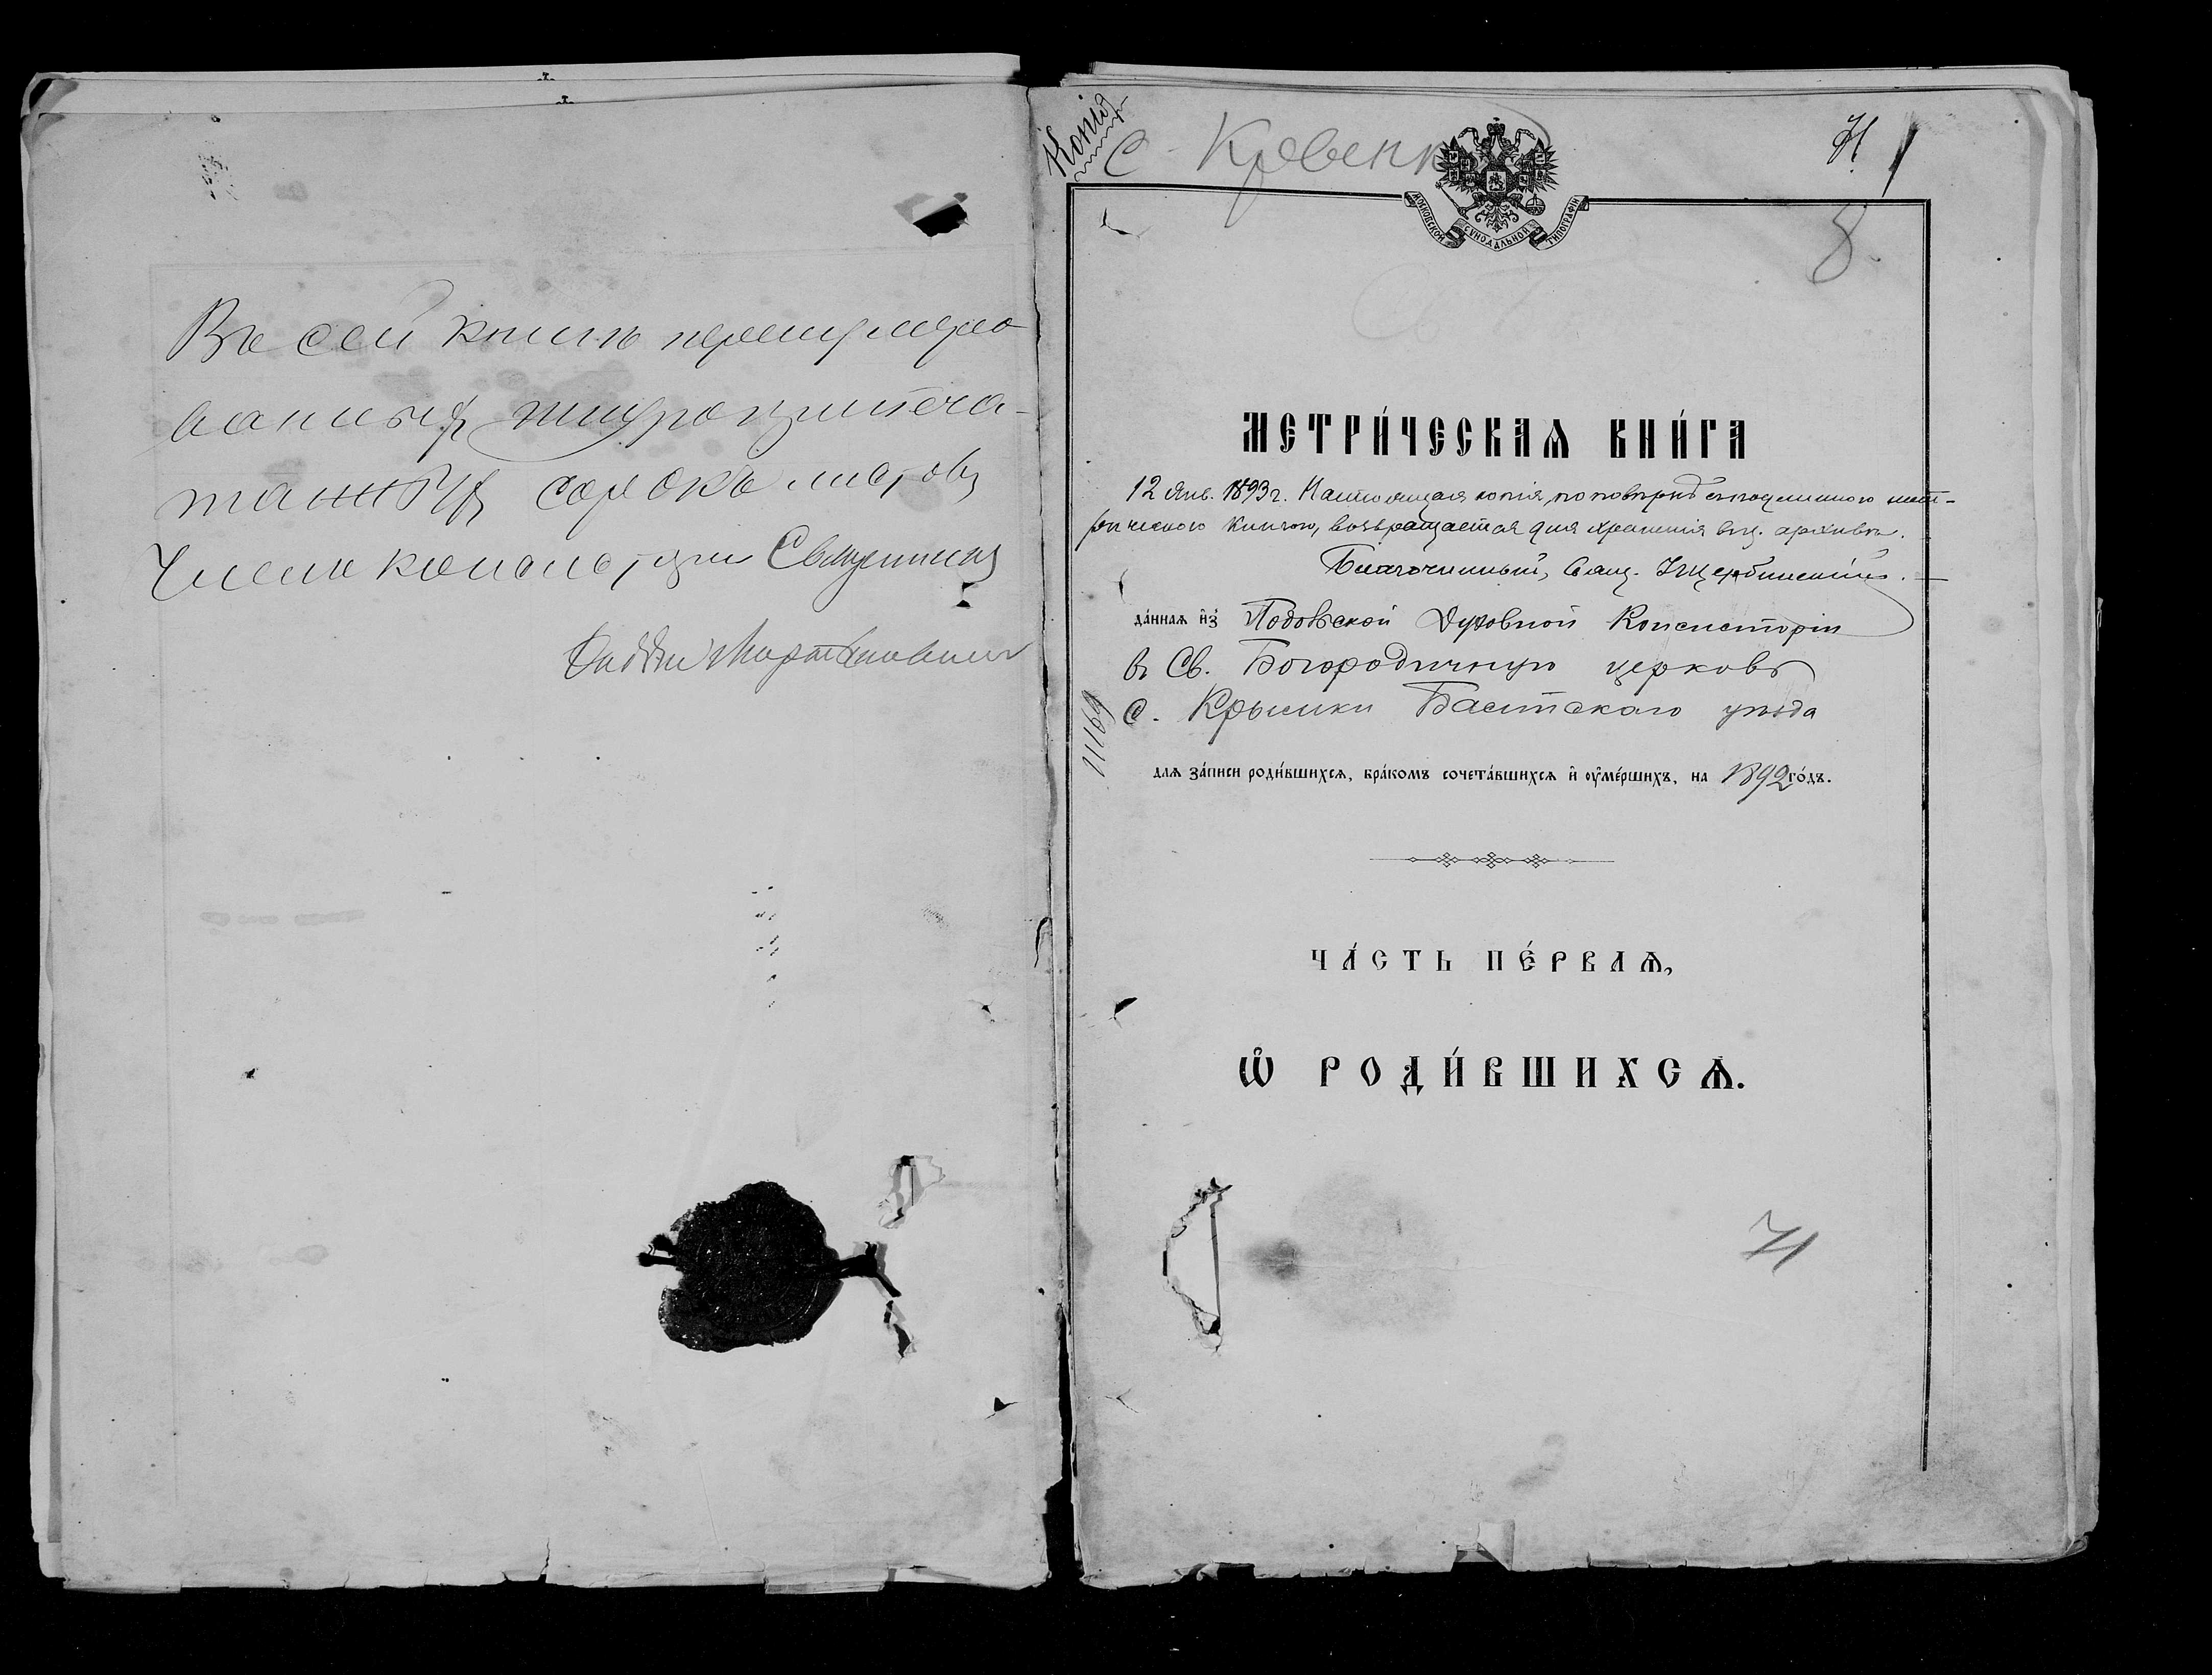 Въ сей книгѣ перенумеро
ванныхъ шнурозапеча-
танныхъ сорокъ листовъ
Членъ консисторіи Священникъ
Копія
С Кревенк
МОСКОВСКОЙ СѴНОДАЛЬНОЙ ТИПОГРАФІИ
8.
МЕТРИ́ЧЕСКАѦ КНИ́ГА
12 Янв. 1893 г. Настоящая копія, по повѣркѣ съ подлинною мет-
рическою книгою, возвращается для храненія въ ц. архивѣ.
Благочинный, Свящ. Щербинскій.
да́ннаѧ и҆з̾ Подольской Духовной Консисторіи
въ Св. Богородичную церковь
с. Крыжки Балтскаго уѣзда
11169
длѧ за́писи роди́вшихсѧ, бра́комъ сочета́вшихсѧ и҆ ᲂу҆ме́ршихъ, на 1892 го́дъ.
ЧА́СТЬ ПЕ́РВАѦ,
Ѽ РОДИ́ВШИХСѦ.
71